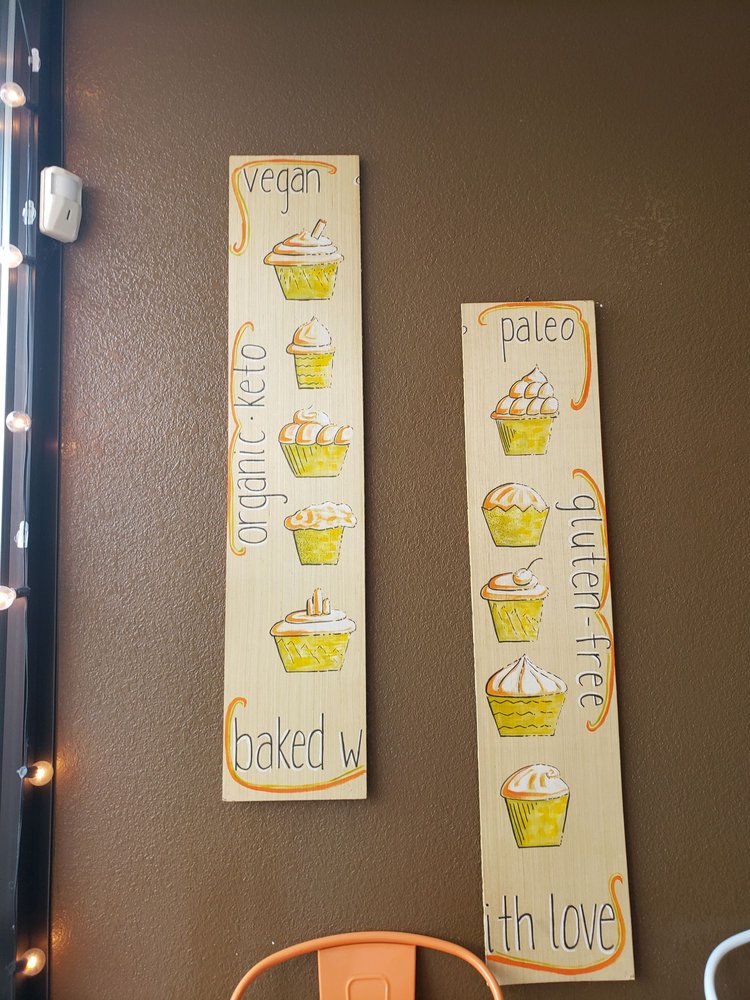 vegan
organic · keto
baked w
paleo
gluten-free
ith love